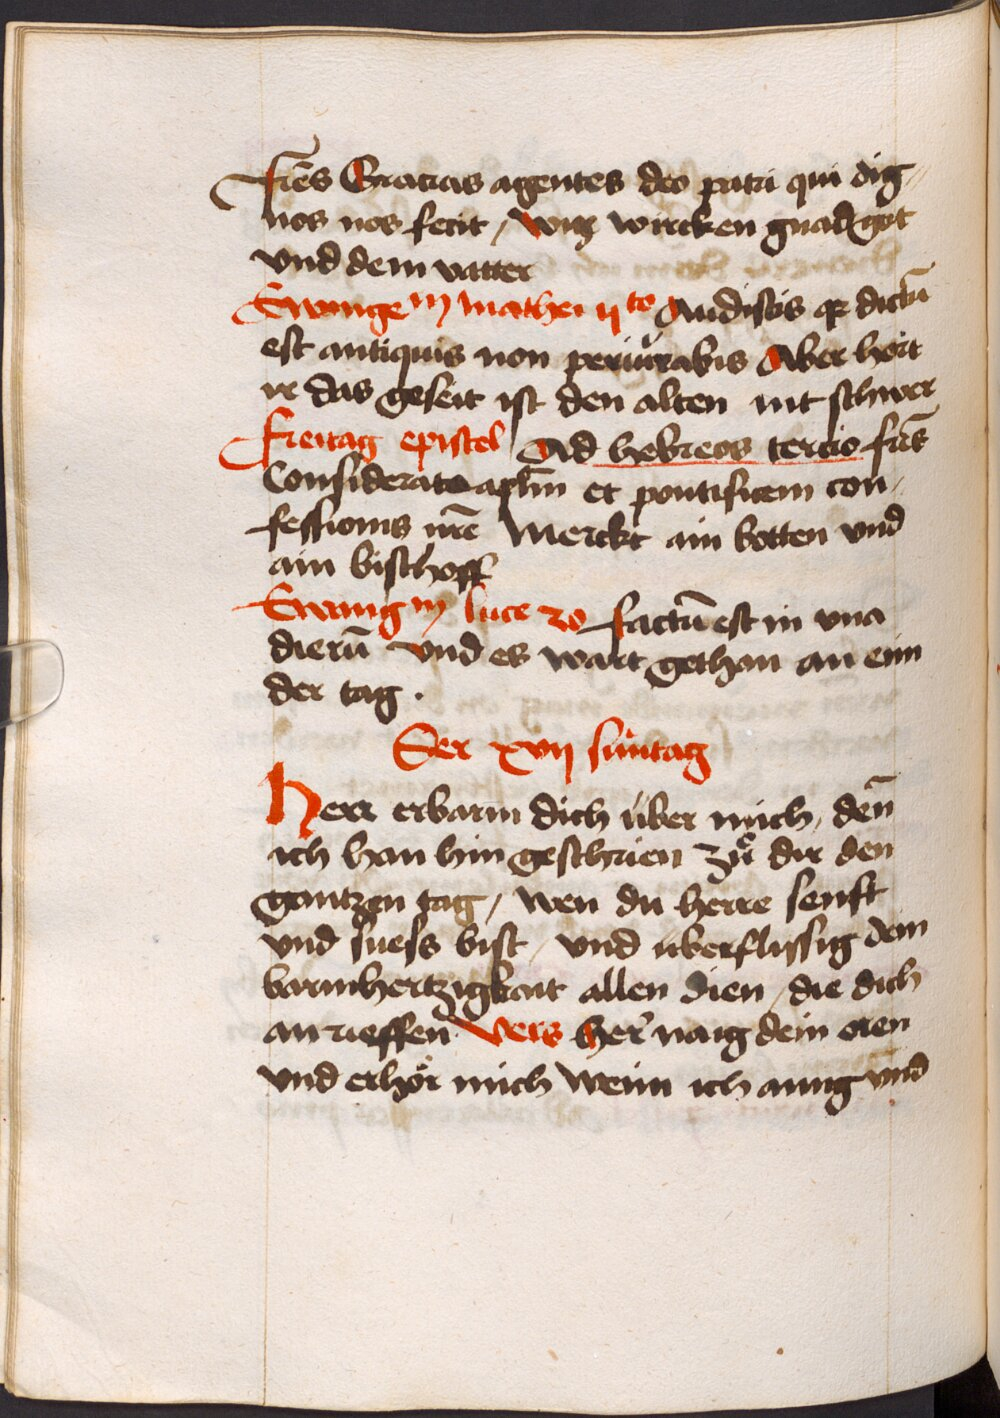 Fr̄es Gracias agentes deo patri qui dig⸗
nos nos fecit / wir wircken gnad got
vnd dem vatter
Ewange m mathei ii to Audistis qz dictū
est antiquis non periurabis Aber hört
ir das geseit ist den alten nit schwer
Freitag epistel Ad hebreos tercio fr̄es
Considerate apl̄m et pontificem con⸗
fessionis nr̄e Merckt ain botten vnd
ain bischoff
Ewang m luce 20 factū est in vna
dierū vnd es wart gethan an eim
der tag .
Der xvii suntag
Herr erbarm dich über mich, den̄
ich han hin geschrien zů dir den
gantzen tag, wen du herre senft
vnd suess bist, vnd überflissig dein
barmhertzigkait allen dien, die dich
an rieffen vers her naig dein oren
vnd erhör mich wenn ich armg vnd